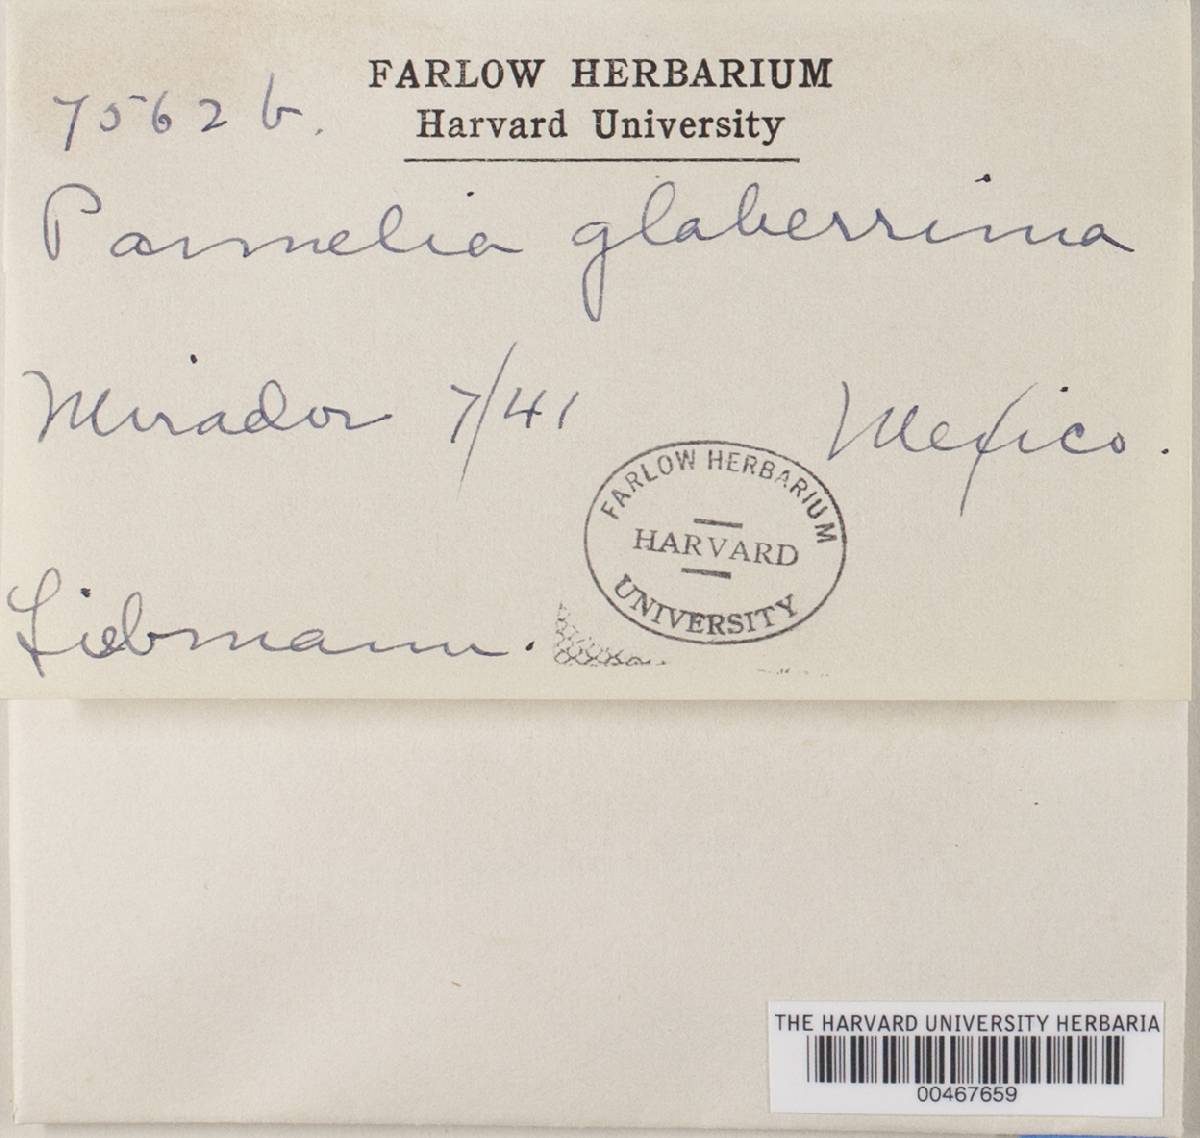 FARLOW HERBARIUM
7562 b.
Harvard University
Parmelia glaberrima
Mirador 7/41 Mexico.
FARLOW HERBARIUM
HARVARD
UNIVERSITY
Liebmann.
THE HARVARD UNIVERSITY HERBARIA
00467659